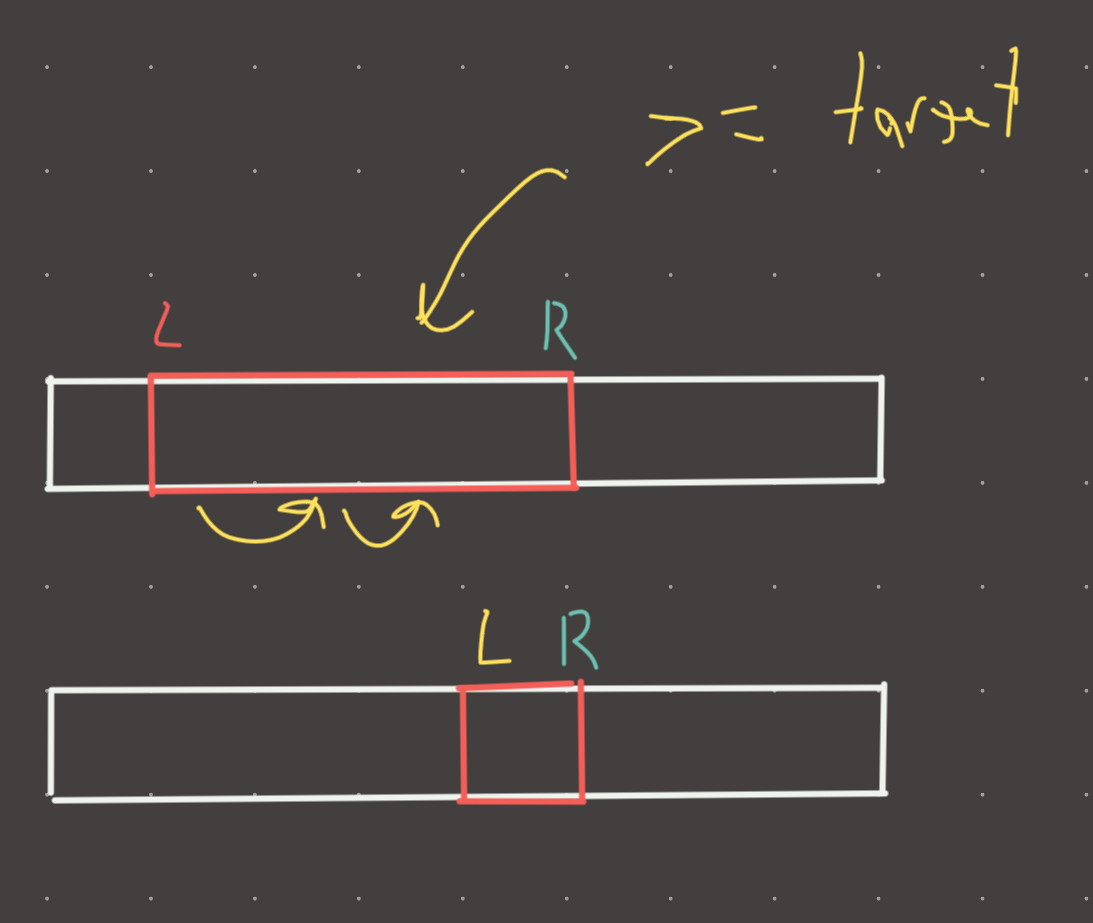 >= target
L R
L R